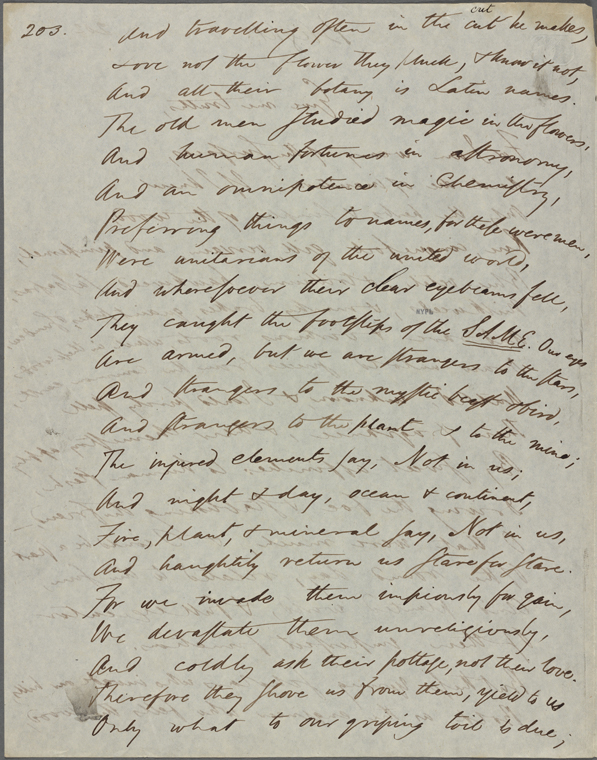 203.
cut
And travelling often in the cut he makes,
Love not the flower they pluck, & know it not,
And all their botany is Latin names.
The old men studied magic in the flowers,
And human fortunes in astronomy,
And an omnipotence in Chemistry,
Preferring things to names, for these were men,
Were unitarians of the united world,
And wheresoever their clear eyebeams fell,
They caught the footsteps of the SAME. Our eyes
Are armed, but we are strangers to the stars,
And strangers to the mystic beast & bird,
And strangers to the plant & to the mine;
The injured elements say, Not in us;
And night & day, ocean & continent,
Fire, plant, & mineral say, Not in us,
And haughtily return us stare for stare.
For we invade them impiously for gain,
We devastate them unreligiously,
And coldly ask their pottage, not their love.
Therefore they shove us from them, yield to us
Only what to our griping toil is due;
NYPL